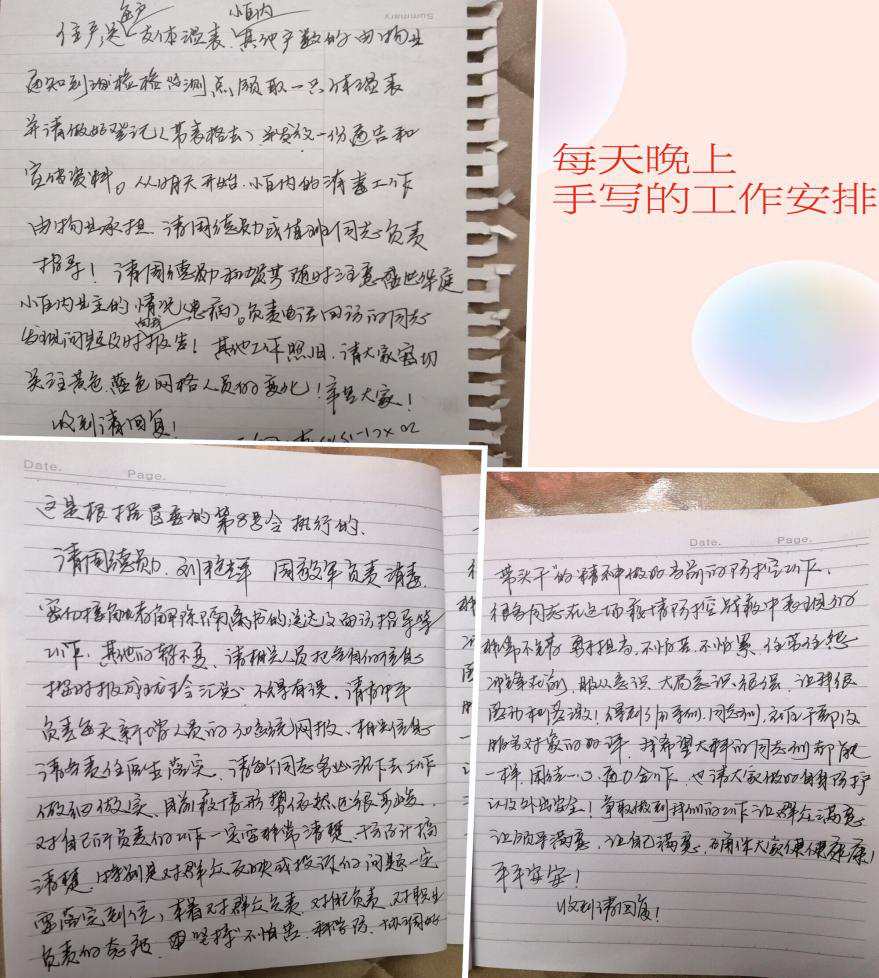 Summary
每户
小区内
住户送 支体温表,其他户数的由物业
通知到 检疫监测点领取一只体温表
并请做好登记(带表格去)并发放一份通告和
宣传资料。从明天开始,小区内的消毒工作
由物业承担,请周德勋或值班同志负责
指导!请周德勋和 随时注意 家庭
小区内业主的情况(患病)。负责电话回访的同志
发现问题及时报告!其他工作照旧,请大家密切
关注黄色、蓝色网格人员的变化!辛苦大家!
收到请回复!
每天晚上
手写的工作安排
Date.
Page.
这是根据 的第8号令执行的。
请周德勋、刘 周 军负责消毒、
密切接触者解除隔离书的送达及面访指导等
工作,其他的暂不变,请相关人员把各自的信息
按时报 汇总,不得有误。请
负责每天新增人员的 系统网报,相关信息
请负责任医生落实,请每个同志务必沉下去工作
做细做实,目前疫情形势依然也很严峻,
对自己所负责的工作一定要非常清楚,
清楚,特别是对群众反映或投诉的问题一定
要落实到位,本着对群众负责、对自己负责、对职业
负责的态度, "不怕苦、科学防、协调好
Date.
Page.
带头干"的精神做好当前的防控工作,
很多同志在这场疫情防控战役中表现的
非常不错,勇于担当,不怕苦、不怕累,任劳任怨
冲锋在前,服从意识、大局意识很强,让我很
感动和感激!得到了 、同志们、 干部及
服务对象的好评,我希望大科的同志们都能
一样,团结一心,通力合作,也请大家做好自身防护
以及外出安全!争取做到我们的工作让群众满意
让领导满意,让自己满意,确保大家健健康康!
平平安安!
收到请回复!